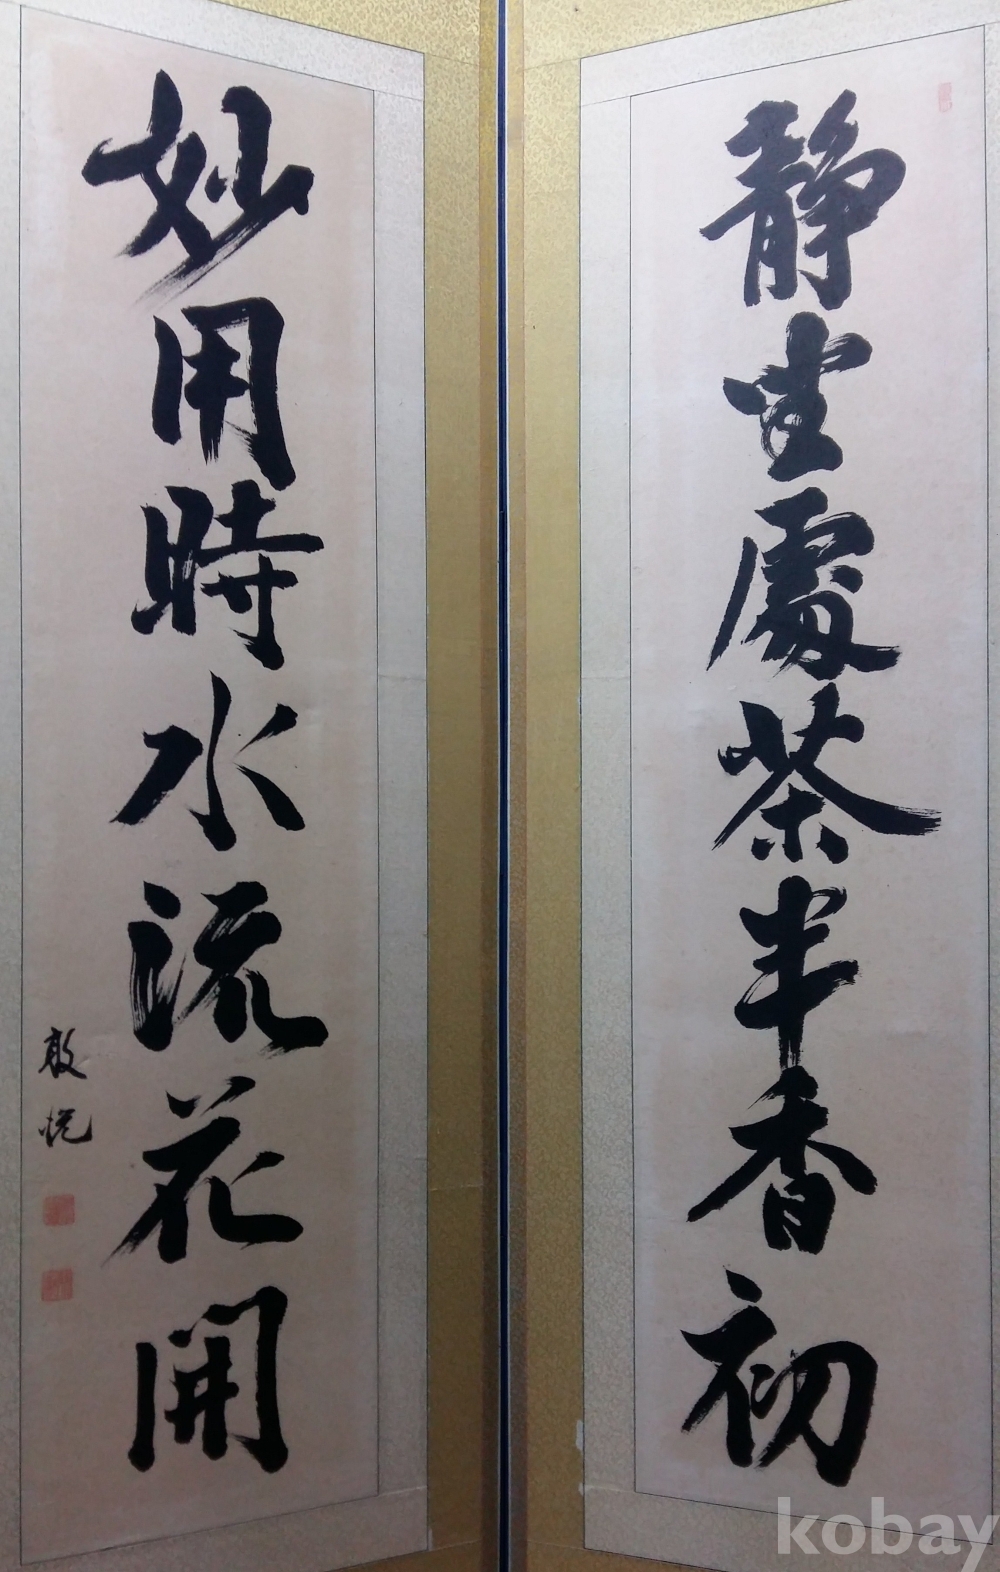 静坐處茶半香初
妙用時水流花開
敬悅
kobay